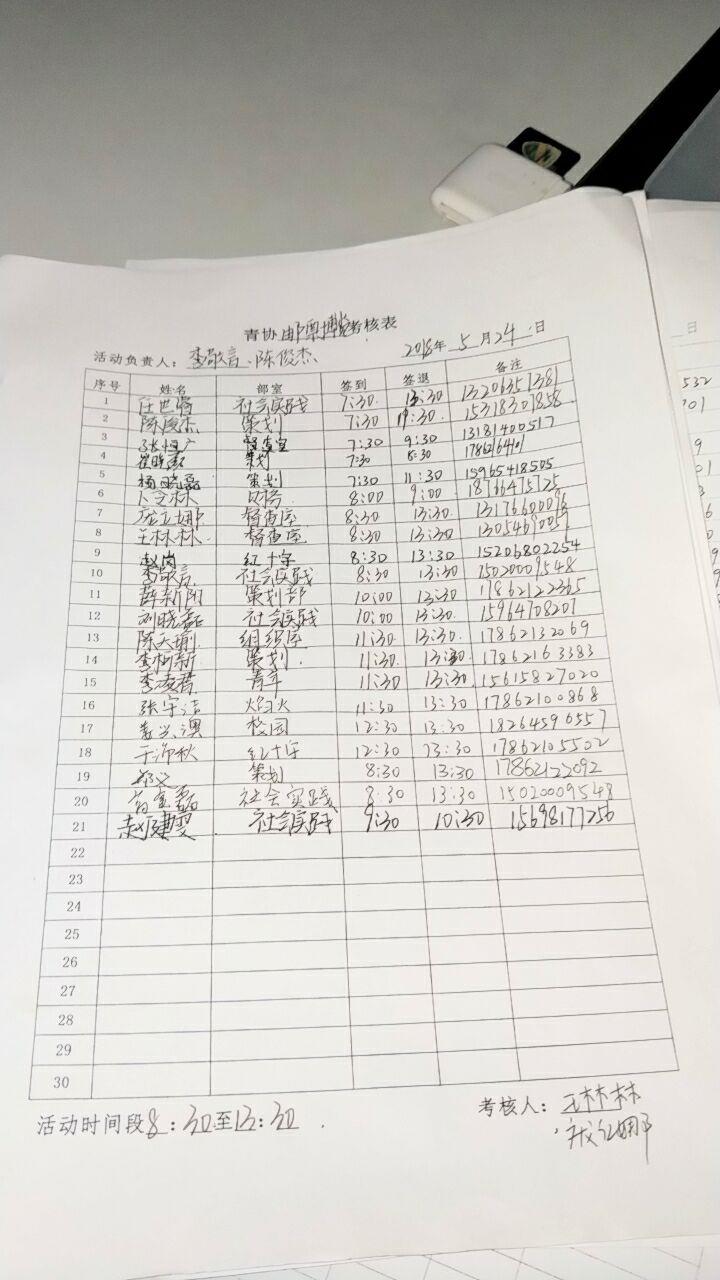 青协邮票博览考核表
活动负责人：李敬言、陈俊杰 2018年5月24日
序号 姓名 部室 签到 签退 备注
1 任世 社会实践 7:30 13:30 13206351381
2 陈俊杰 策划 7:30 19:30 15318301858
3 张恒广 督查室 7:30 9:30 13181400517
4 崔晓 策划 7:30 8:30 17862164101
5 杨晓磊 策划 7:30 11:30 15965418505
6 卜文林 8:00 9:00 18766475725
7 庞立娜 督查室 8:30 13:30 13176600096
8 王林林 督查室 8:30 13:30 13054690057
9 赵岗 红十字 8:30 13:30 15206802254
10 李敬言 社会实践 8:30 13:30 15020009548
11 薛新阳 策划部 10:00 13:30 17862122365
12 刘晓磊 社会实践 10:00 13:30 15964708201
13 陈天瑜 组织部 11:30 13:30 17862132069
14 李柯新 策划 11:30 13:30 17862163383
15 李凌君 青年 11:30 13:30 15615827020
16 张宇洁 焰火 11:30 13:30 17862100868
17 兴澳 校园 12:30 13:30 18264596557
18 于沛秋 红十字 12:30 13:30 17862105502
19 郑义 策划 8:30 13:30 17862122092
20 社会实践 8:30 13:30 15020009548
21 赵建雯 社会实践 9:30 10:30 15698177256
22
23
24
25
26
27
28
29
30
活动时间段8：30至13：30
考核人：王林林
532
701